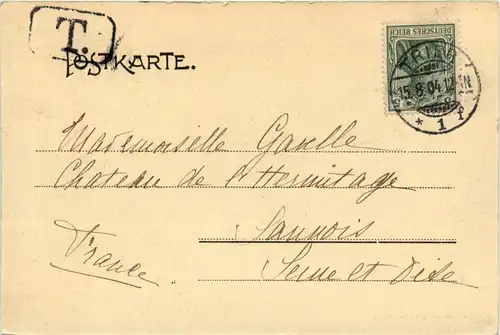 T.
POSTKARTE.
DEUTSCHES REICH
TRIER
15.8.04.12-1N
* 1 f
Mademoiselle Gaulle
Chateau de l'Hermitage
Sannois
France
Seine et Oise